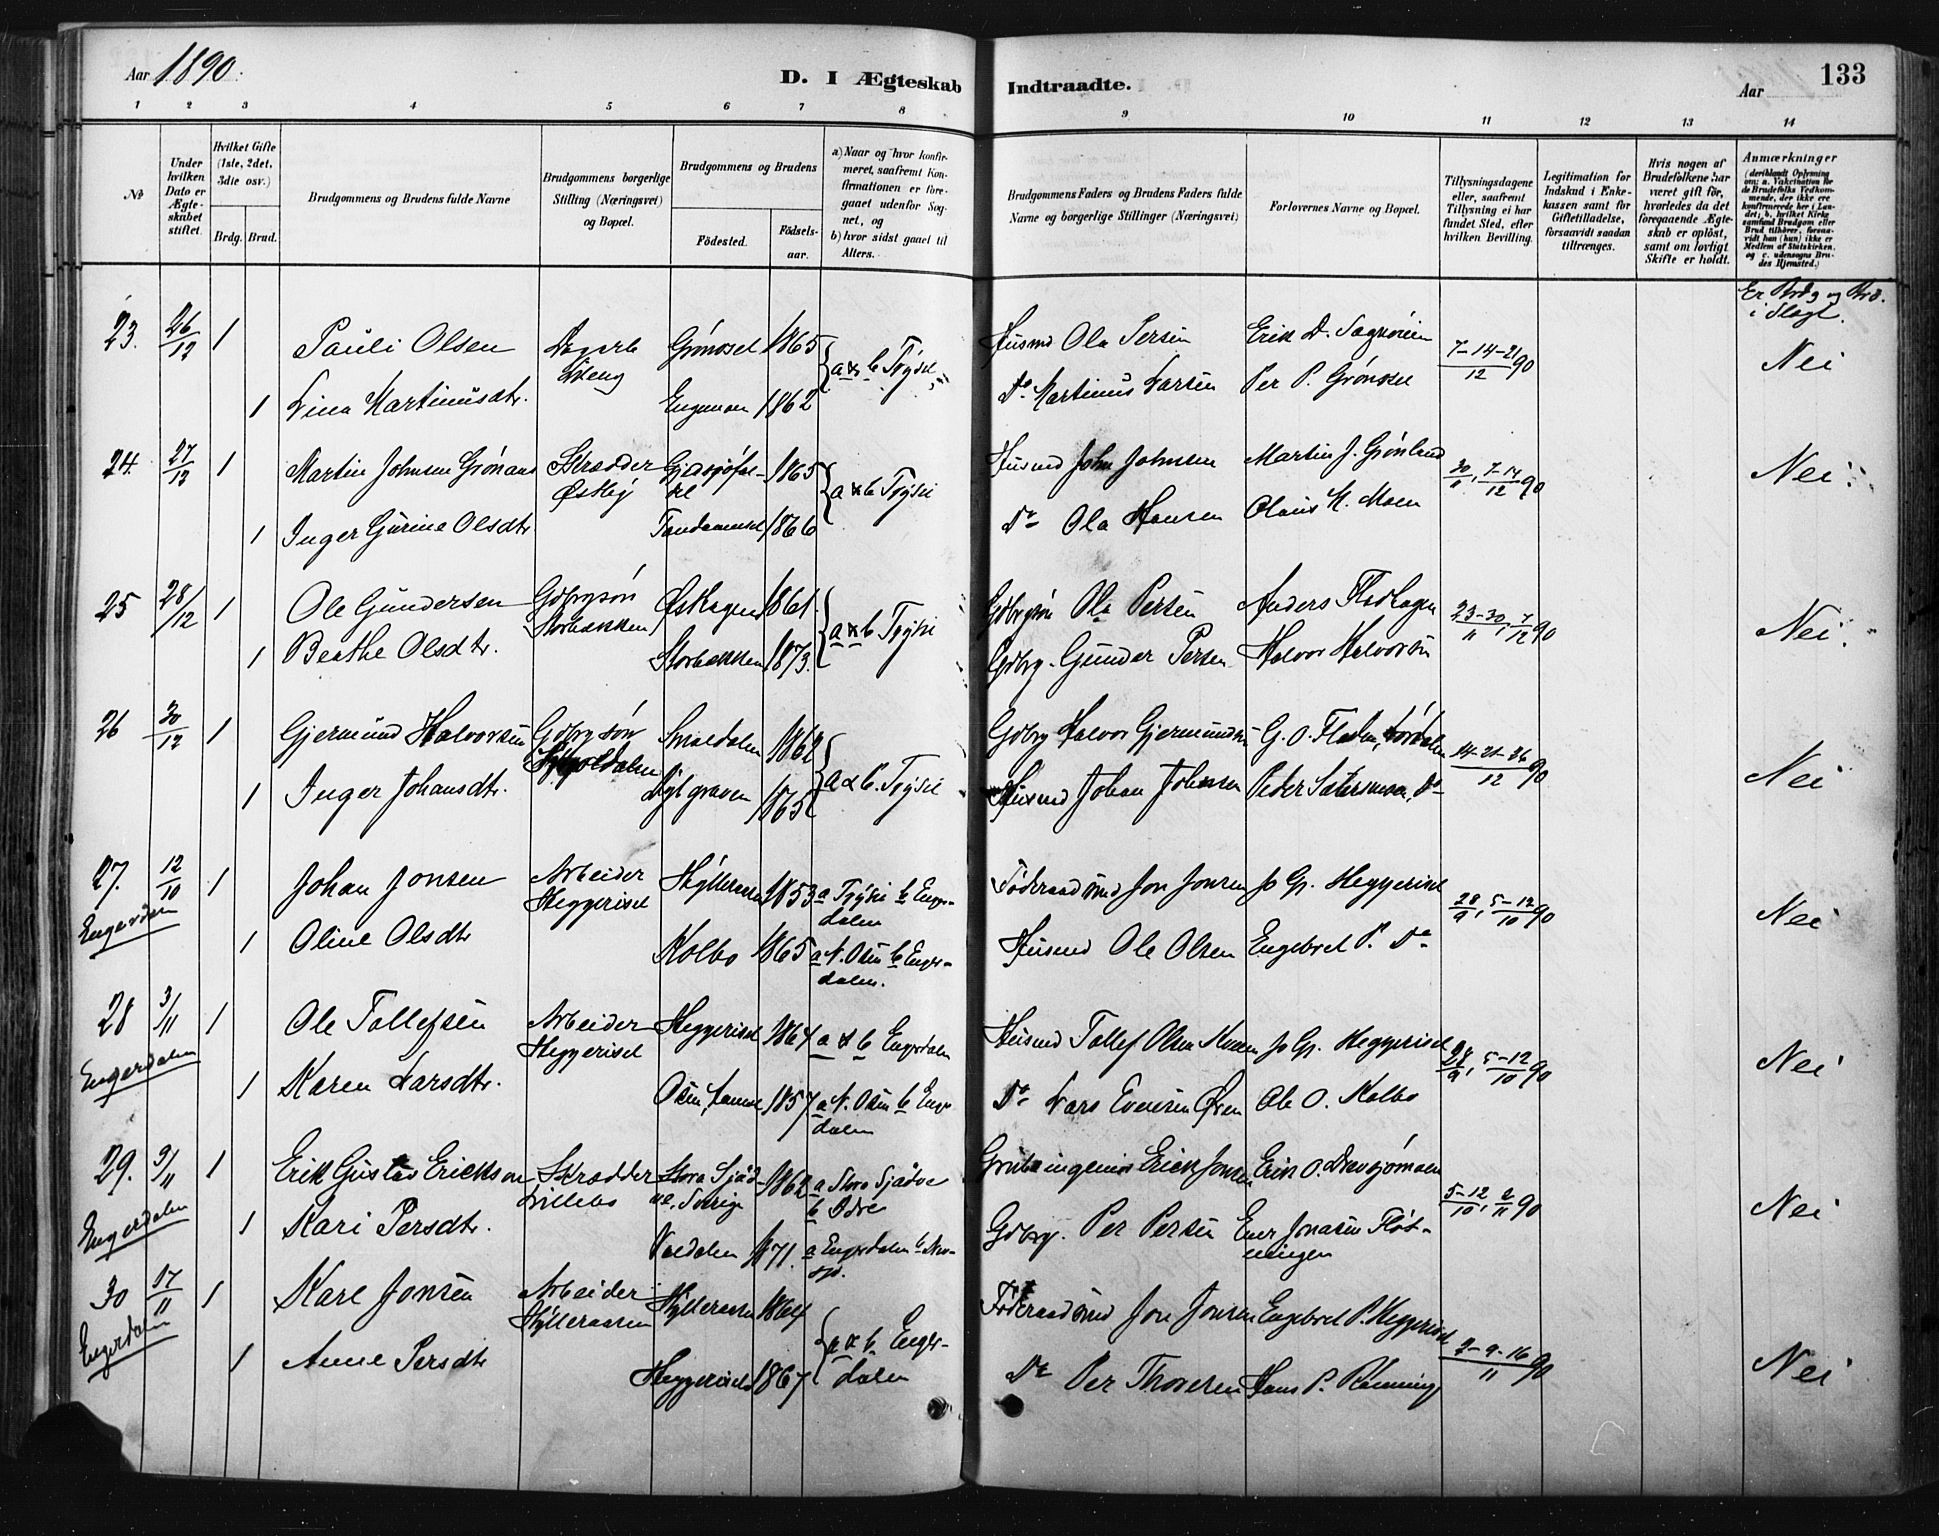 Aar 1890.
D. I Ægteskab Indtraadte.
Aar
133
1 2 3 4 5 6 7 8 9 10 11 12 13 14
№
Under hvilken Dato er Ægteskabet stiftet.
Hvilket Gifte (1ste, 2det, 3die osv.)
Brdg. Brud.
Brudgommens og Brudens fulde Navne
Brudgommens borgerlige Stilling (Næringsvei) og Bopæl.
Brudgommens og Brudens
Födested.
Födselsaar.
a) Naar og hvor konfirmeret, saafremt Konfirmationen er foregaaet udenfor Sognet, og
b) hvor sidst gaaet til Alters.
Brudgommens Faders og Brudens Faders fulde Navne og borgerlige Stillinger (Næringsvei)
Forlovernes Navne og Bopæl.
Tillysningsdagene eller, saafremt Tillysning ei har fundet Sted, efter hvilken Bevilling.
Legitimation for Indskud i Enkekassen samt for Giftetilladelse, forsaavidt saadan tiltrænges.
Hvis nogen af Brudefolkene har været gift för, hvorledes da det foregaaende Ægteskab er oplöst, samt om lovligt Skifte er holdt.
Anmærkninger (deriblandt Oplysning om: a. Vakcination for de Brudefolks Vedkommende, der ikke ere konfirmerede her i Landet; b. hvilket Kirkesamfund Brudgom eller Brud tilhörer, forsaavidt han (hun) ikke er Medlem af Statskirken, og c. udensogns Brudes Hjemsted.)
Er Brdg og Brd. i Slægt.
23. 26/12 1 Pauli Olsen Grønoset 1865 a & b Tryssil Husmd Ola Persen 7-14-21/12 90 Nei
1 Lina Martinusdtr. Engmoen 1862 Do Martinus Larsen Per P. Grønoset
24 27/12 1 Martin Johnsen Skrædder Østby 1865 a & b Trysil Husmd John Johnsen Martin J. Grønland 30/11, 7-14/12 90 Nei
1 Inger Gurine Olsdtr 1866 Do Ola Hansen Olaus M. Moen
25 28/12 1 Ole Gundersen Gdbrgsøn Storbækken Østhagen 1861. a & b Trysil Gdbrgsøn Ola Persen Anders Flodhagen 23-30/11, 7/12 90 Nei.
1 Beathe Olsdtr. Storbækken 1873. Gdbrg. Gunder Persen Halvor Halvorsen
26 30/12 1 Gjermund Halvorsen Gdbrgsøn 1862 a & b. Trysil Gdbrg Halvor Gjermundsen G. O. 14-21-26/12 90 Nei
1 Inger Johansdtr. 1865 Husmd Johan Johnsen Peder Do
27. 12/10 1 Johan Jonsen Arbeider Heggeriset Hylleraasen 1853 a Trysil b Engerdalen Føderaadsmd Jon Jonsen Jo Gp. Heggeriset 28/9, 5-12/10 90 Nei
Engerdalen
1 Oline Olsdtr Kolbo 1865 a N. Osen b Engerdalen. Husmd Ole Olsen Engebret P. Do
28 3/11 1 Ole Tollefsen Arbeider Heggeriset Heggeriset 1864 a & b Engerdalen Husmd Tollef Olsen Jo Gp. Heggeriset 28/9, 5-12/10 90 Nei
Engerdalen
1 Karen Larsdtr. Osen 1857 a N. Osen b Engerdalen Do Lars Evensen Ole O. Kolbo
29. 9/11 1 Erik Gustav Erickson Skrædder Lillebo 1862 a Stora b Idre Erick Jonsen Erik O. Drevsjømoen 5-12/10, 2/11 90 Nei
Engerdalen
1 Kari Persdtr. 1871. a Engerdalen Gdbrg. Per Persen Ener Jonasen Fløtningen
30 17/11 1 Kare Jonsen Arbeider Hylleraasen Hylleraasen 1864 a & b Engerdalen Føderaadsmd Jon Jonsen Engebret P. Heggeriset 2-9-16/11 90 Nei
Engerdalen
1 Anne Persdtr Heggeriset 1867 Do Per Thoresen Hans P. Rønning